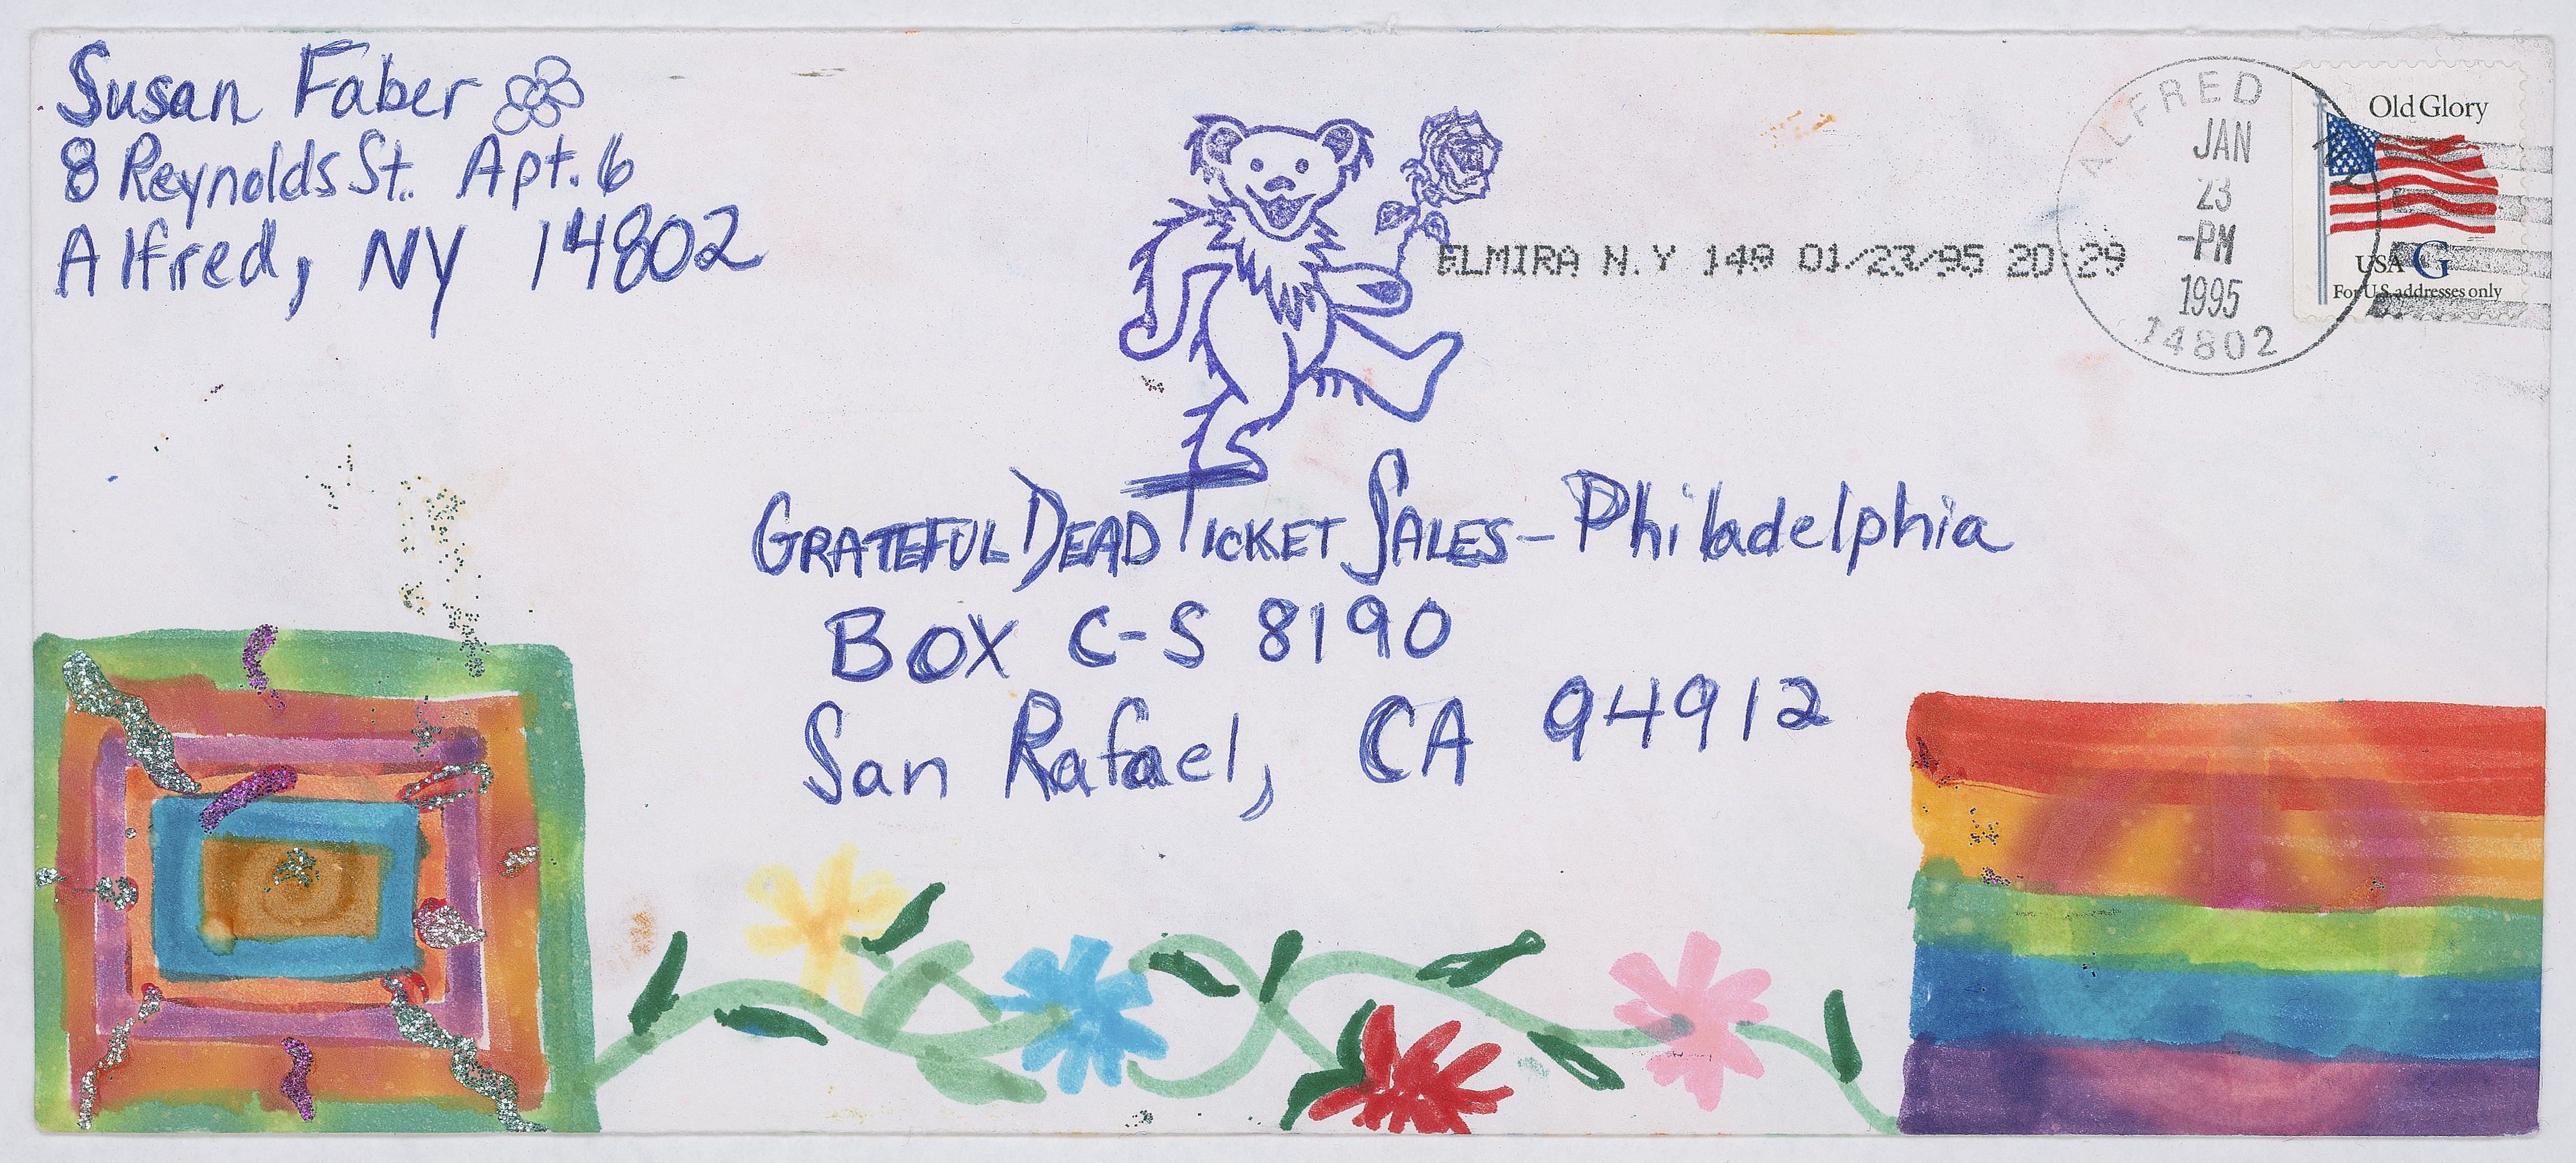 Susan Faber
8 Reynolds St. Apt. 6
Alfred, NY 14802
ALFRED
JAN
23
-PM
1995
14802
Old Glory
USA G
For U.S. addresses only
ELMIRA N.Y 149 01/23/95 20:29
GRATEFUL DEAD TICKET SALES - Philadelphia
BOX C-S 8190
San Rafael, CA 94912